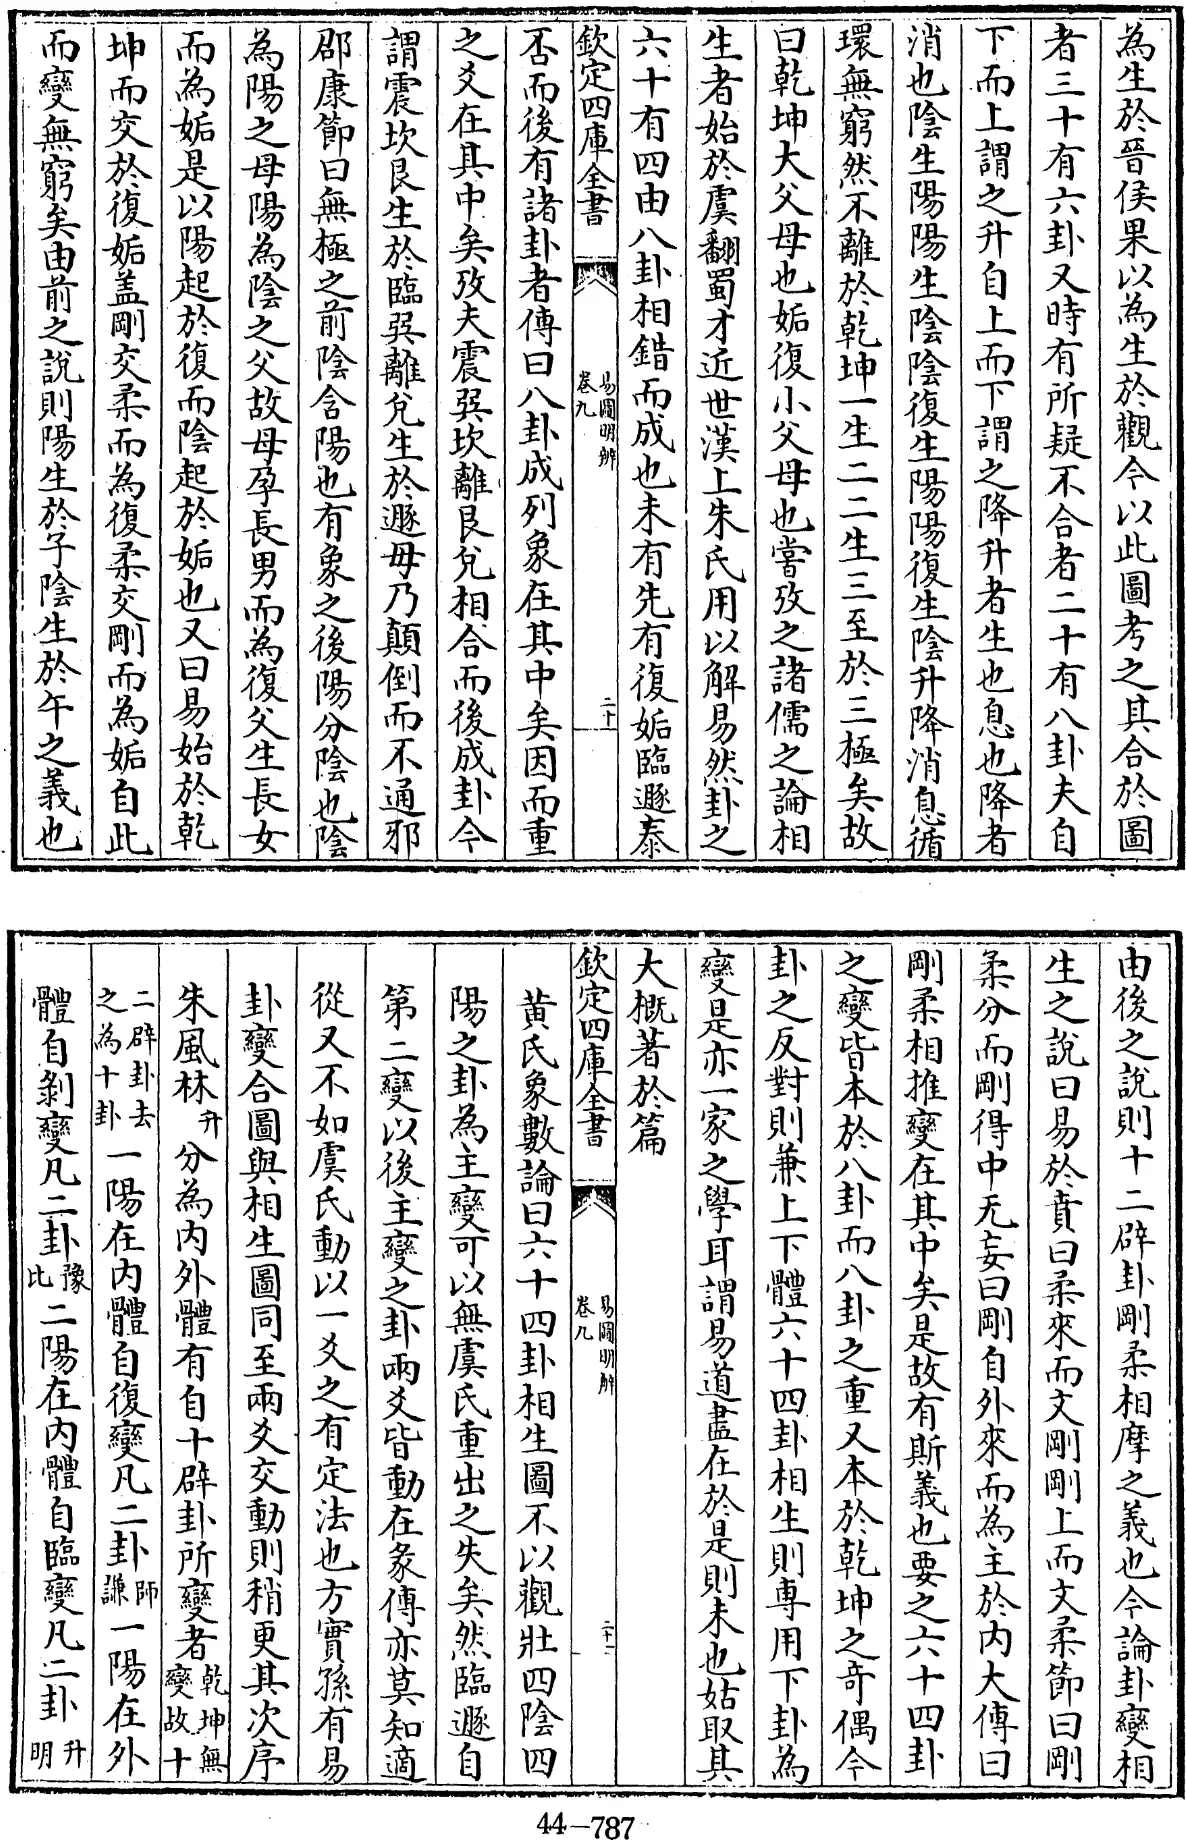 為生於晉侯果以為生於觀今以此圖考之其合於圖
者三十有六卦又時有所疑不合者二十有八卦夫自
下而上謂之升自上而下謂之降升者生也息也降者
消也陰生陽陽生陰陰復生陽陽復生陰升降消息循
環無窮然不離於乾坤一生二二生三至於三極矣故
曰乾坤大父母也姤復小父母也嘗攷之諸儒之論相
生者始於虞翻蜀才近世漢上朱氏用以解易然卦之
六十有四由八卦相錯而成也未有先有復姤臨遯泰
欽定四庫全書
易圖明辨
卷九
二十
否而後有諸卦者傳曰八卦成列象在其中矣因而重
之爻在其中矣攷夫震巽坎離艮兌相合而後成卦今
謂震坎艮生於臨巽離兌生於遯毋乃顛倒而不通邪
邵康節曰無極之前陰含陽也有象之後陽分陰也陰
為陽之母陽為陰之父故母孕長男而為復父生長女
而為姤是以陽起於復而陰起於姤也又曰易始於乾
坤而交於復姤盖剛交柔而為復柔交剛而為姤自此
而變無窮矣由前之說則陽生於子陰生於午之義也
由後之說則十二辟卦剛柔相摩之義也今論卦變相
生之說曰易於賁曰柔來而文剛剛上而文柔節曰剛
柔分而剛得中无妄曰剛自外來而為主於內大傳曰
剛柔相推變在其中矣是故有斯義也要之六十四卦
之變皆本於八卦而八卦之重又本於乾坤之奇偶今
卦之反對則兼上下體六十四卦相生則專用下卦為
變是亦一家之學耳謂易道盡在於是則未也姑取其
大概著於篇
欽定四庫全書
易圖明辨
卷九
二十一
黄氏象數論曰六十四卦相生圖不以觀壯四陰四
陽之卦為主變可以無虞氏重出之失矣然臨遯自
第二變以後主變之卦兩爻皆動在彖傳亦莫知適
從又不如虞氏動以一爻之有定法也方實孫有易
卦變合圖與相生圖同至兩爻交動則稍更其次序
朱風林升分為內外體有自十辟卦所變者乾坤無變故十
二辟卦去之為十卦一陽在內體自復變凡二卦師謙一陽在外
體自剝變凡二卦豫比二陽在內體自臨變凡二卦升明
44-787